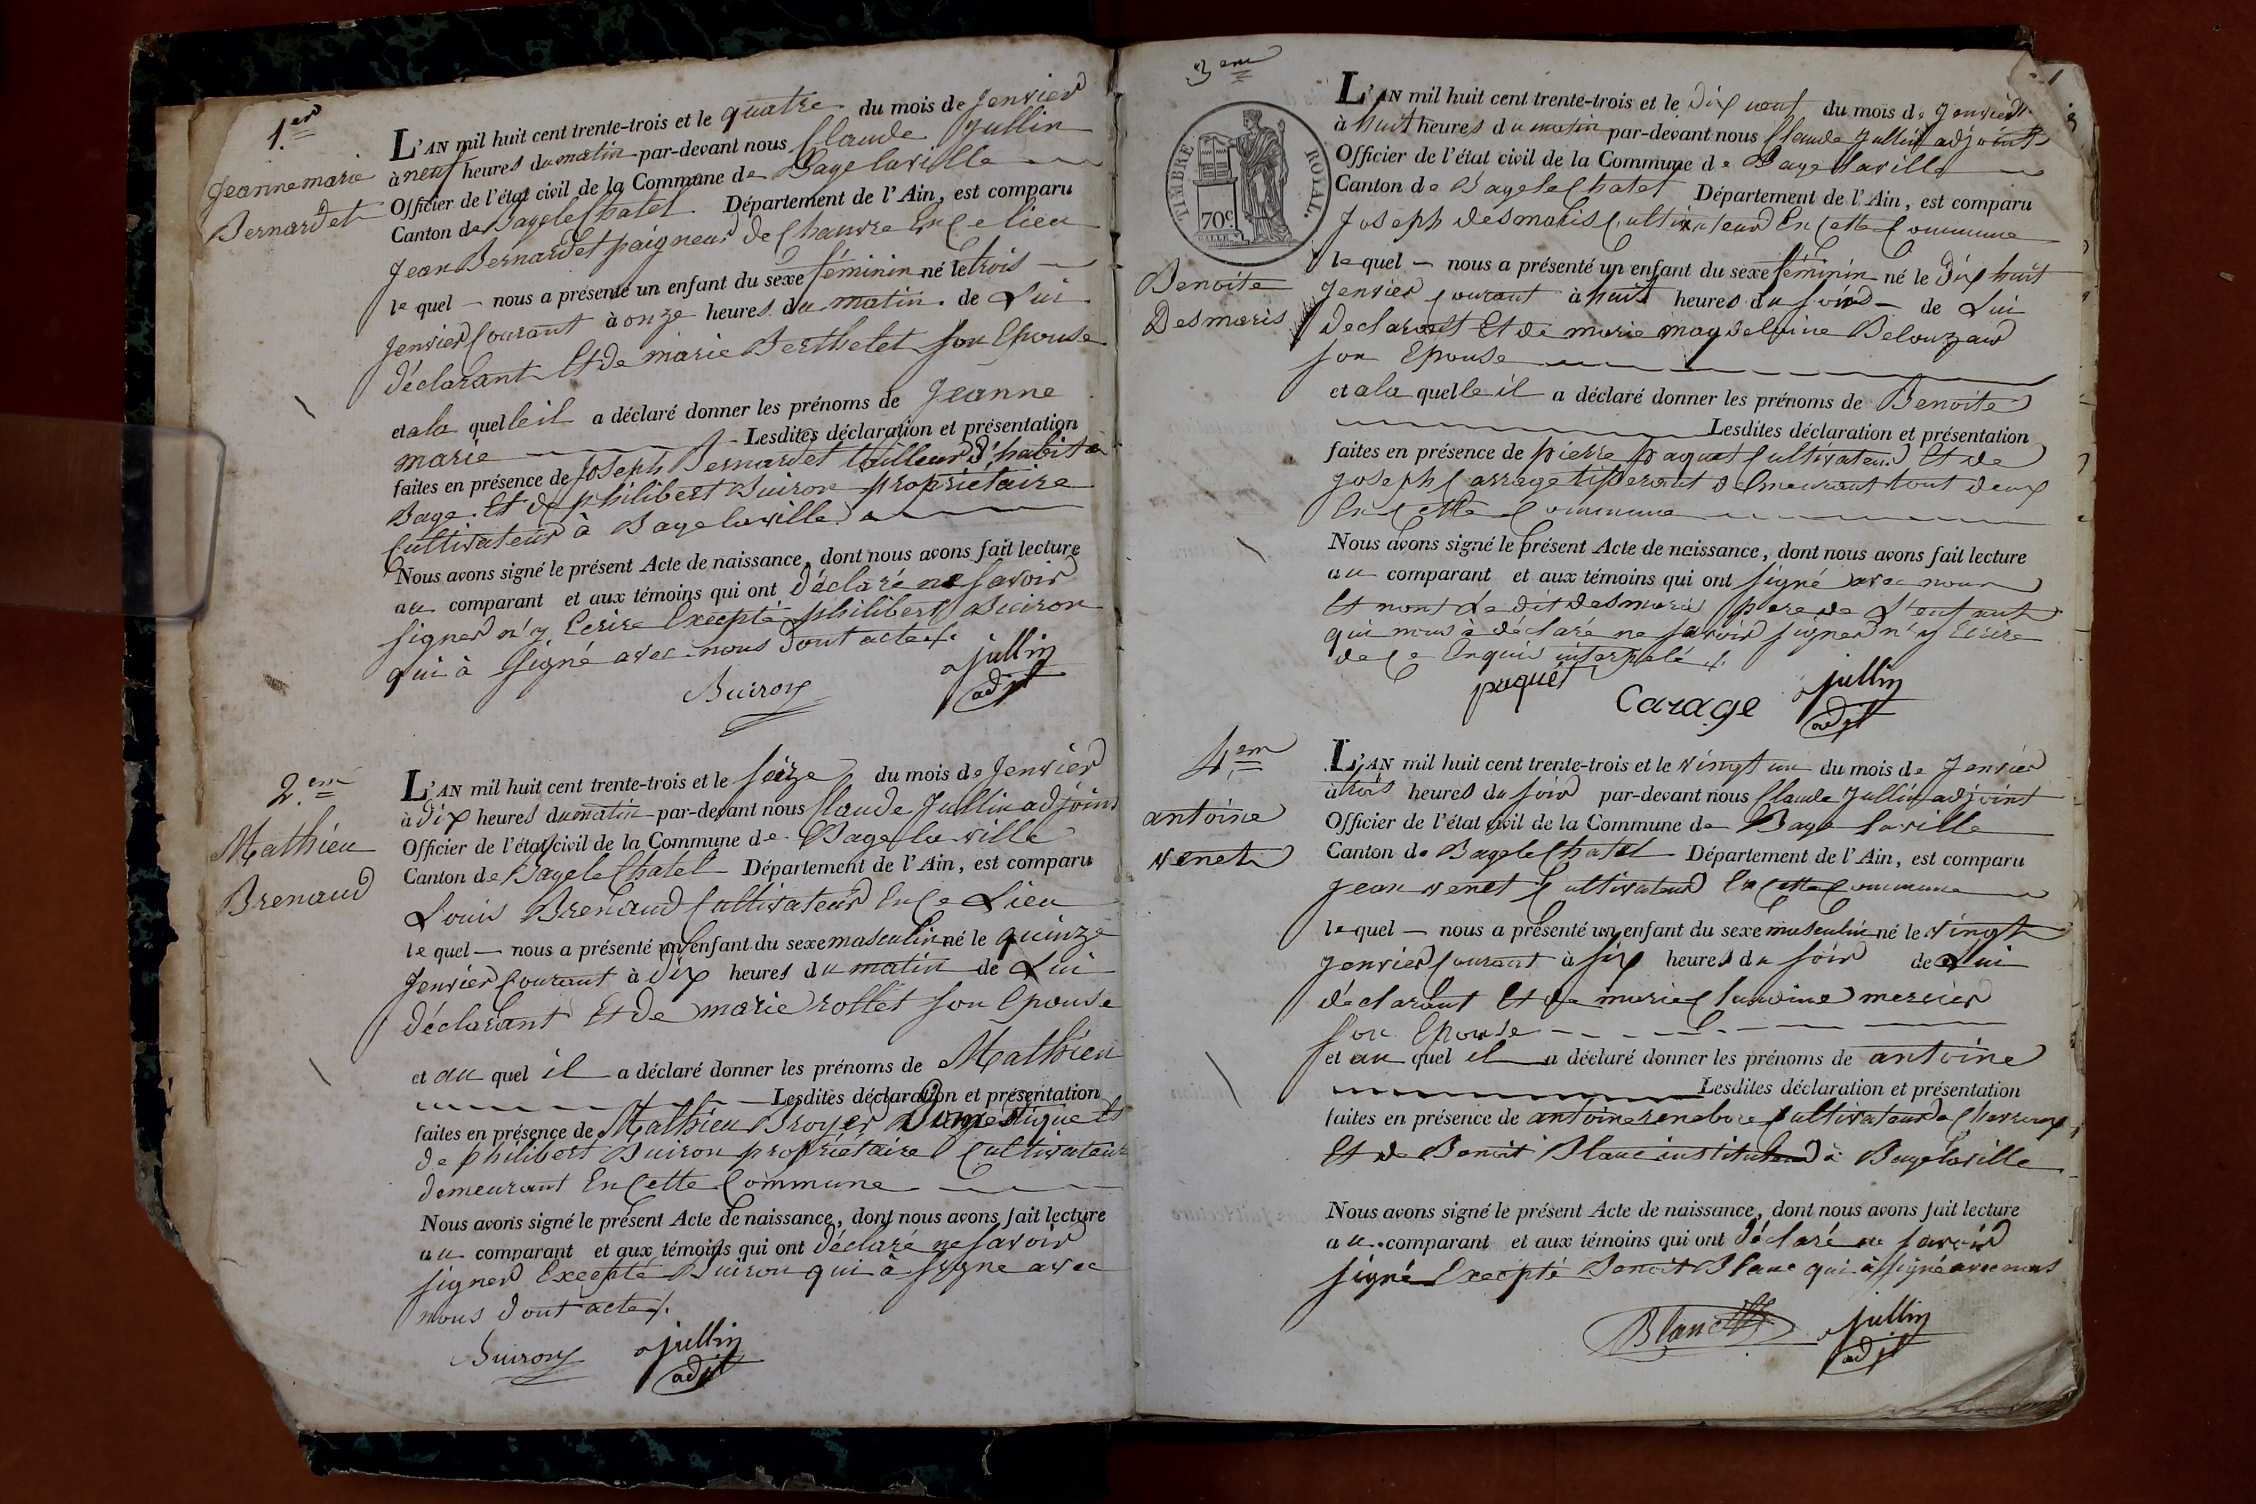 1.er
Jeanne marie
Bernardet
L'AN mil huit cent trente-trois et le quatre du mois de Jenvier
à neuf heures du matin par-devant nous Claude Jullin
Officier de l'état civil de la Commune de Bage la ville
Canton de Bage le Chatel Département de l'Ain, est comparu
Jean Bernardet paigneur de Chanvre En Ce lieu
le quel nous a présenté un enfant du sexe féminin né le trois
Jenvier Courant à onze heures du matin de Lui
déclarant Et de marie Berthelet son Epouse
et a la quelle il a déclaré donner les prénoms de Jeanne
marie Lesdites déclaration et présentation
faites en présence de Joseph Bernardet tailleur d'habit a
Bage. Et de philibert Buiron propriétaire
Cultivateur à Bage la ville
Nous avons signé le présent Acte de naissance, dont nous avons fait lecture
au comparant et aux témoins qui ont déclaré ne savoir
signer n'y Ecrire Excepté philibert Buiron
qui à signé avec nous dont acte ./.
Buiron jullin
adjt
2.em
Mathieu
Brenaud
L'AN mil huit cent trente-trois et le seize du mois de Jenvier
à dix heures du matin par-devant nous Claude Jullin adjoint
Officier de l'état civil de la Commune de Bage la ville
Canton de Bage le Chatel Département de l'Ain, est comparu
Louis Brenaud Cultivateur En Ce Lieu
le quel nous a présenté un enfant du sexe masculin né le quinze
Jenvier Courant à dix heures du matin de Lui
déclarant Et de marie rollet son Epouse
et au quel il a déclaré donner les prénoms de Mathieu
Lesdites déclaration et présentation
faites en présence de Mathieu Broyer Domestique Et
de philibert Buiron propriétaire Cultivateur
demeurant En Cette Commune
Nous avons signé le présent Acte de naissance, dont nous avons fait lecture
au comparant et aux témoins qui ont déclaré ne savoir
signer Excepté Buiron qui a signé avec
nous dont acte ./.
Buiron jullin
adjt
3em
TIMBRE ROYAL.
70c.
Benoite
Desmaris
L'AN mil huit cent trente-trois et le Dix neuf du mois de Jenvier
à huit heures du matin par-devant nous Claude Jullin adjoint
Officier de l'état civil de la Commune de Bage la ville
Canton de Bage le Chatel Département de l'Ain, est comparu
Joseph desmaris Cultivateur En Cette Commune
le quel nous a présenté un enfant du sexe féminin né le Dix huit
Jenvier Courant à huit heures du soir de Lui
declarant Et de marie magdelaine Belouzard
son Epouse
et a la quelle il a déclaré donner les prénoms de Benoite
Lesdites déclaration et présentation
faites en présence de pierre paquet Cultivateur Et de
joseph Carrage tisserant demeurant tout deux
En Cette Commune
Nous avons signé le présent Acte de naissance, dont nous avons fait lecture
au comparant et aux témoins qui ont signé avec nous
Et non Le dit desmaris pere de L'enfant
qui nous à déclaré ne savoir signer n'y Ecrire
de Ce Enquis interpelé ./.
paquet Carage jullin
adjt
4.em
antoine
venet
L'AN mil huit cent trente-trois et le vingt un du mois de Jenvier
à trois heures du soir par-devant nous Claude Jullin adjoint
Officier de l'état civil de la Commune de Bage la ville
Canton de Bage le Chatel Département de l'Ain, est comparu
Jean venet Cultivateur En Cette Commune
le quel nous a présenté un enfant du sexe masculin né le vingt
Jenvier Courant à six heures du soir de Lui
déclarant Et de marie Claudine mercier
son Epouse
et au quel il a déclaré donner les prénoms de antoine
Lesdites déclaration et présentation
faites en présence de antoine Cultivateur a
Et de Benoit Blanc instituteur à Bage la ville
Nous avons signé le présent Acte de naissance, dont nous avons fait lecture
au comparant et aux témoins qui ont déclaré ne savoir
signé Excepté Benoit Blanc qui à signé avec nous
Blanc jullin
adjt